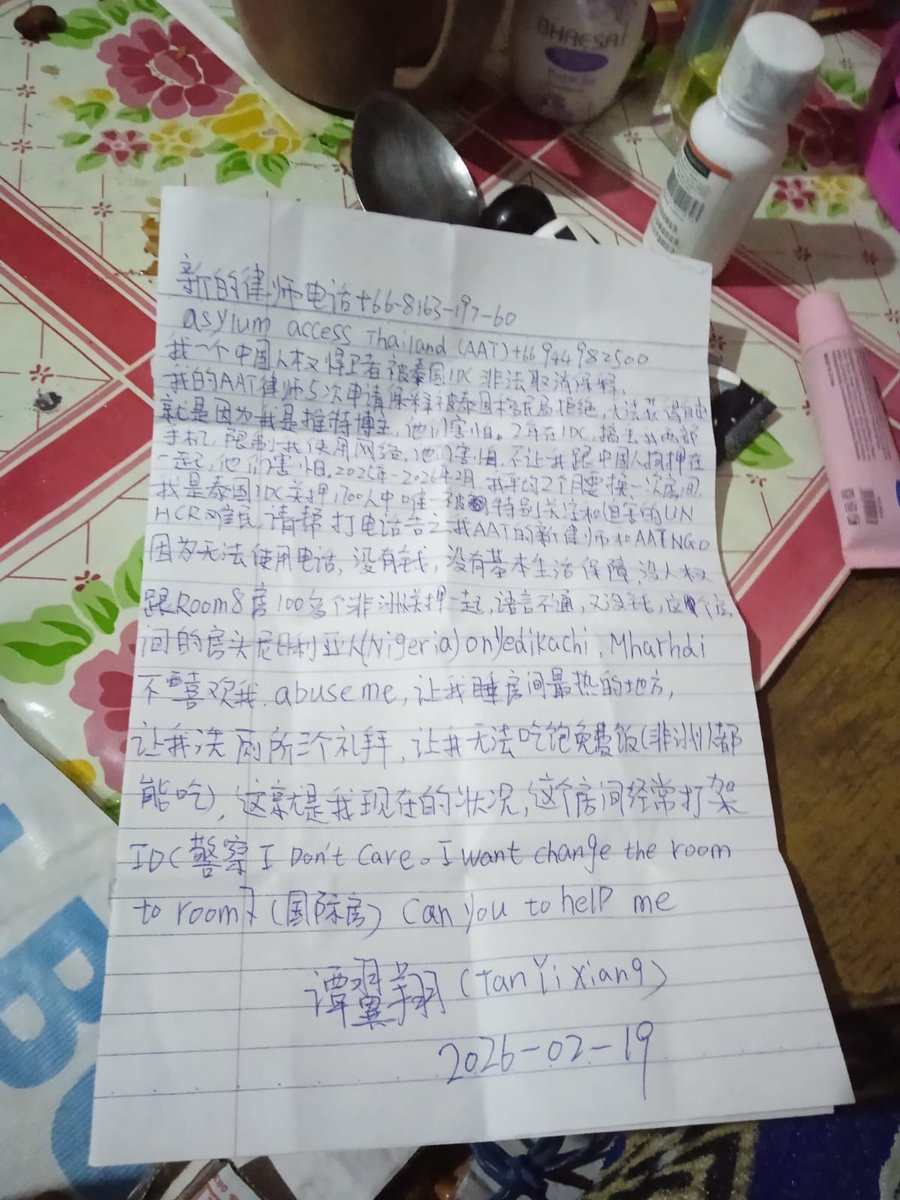 BHAESAJ
新的律师电话+66-8163-197-60
asylum access Thailand (AAT)+66 944982500
我一个中国人权捍卫者被泰国IDC非法取消保释.
我的AAT律师5次申请保释被泰国移民局拒绝,无法获得自由
就是因为我是推特博主,他们害怕。2年在IDC,搞走我两部
手机,限制我使用网络,他们害怕,不让我跟中国人拘押在
一起,他们害怕.2025年-2026年2月,我平均2个月要换一次房间
我是泰国IDC关押1700人中唯一被特别关注和迫害的UN
HCR难民,请帮打电话告之我AAT的新律师和AATNGO
因为无法使用电话,没有钱,没有基本生活保障,没人权
跟Room8房100多个非洲关押一起,语言不通,又没钱,这个房
间的房头尼日利亚人(Nigeria)onyedikachi, Mharhdi
不喜欢我.abuse me,让我睡房间最热的地方,
让我洗厕所三个礼拜,让我无法吃饱免费饭(非洲都
能吃),这就是我现在的状况,这个房间经常打架
IDC警察 I Don't Care。I want change the room
to room7(国际房) can you to help me
谭翼翔(tanYixiang)
2026-02-19